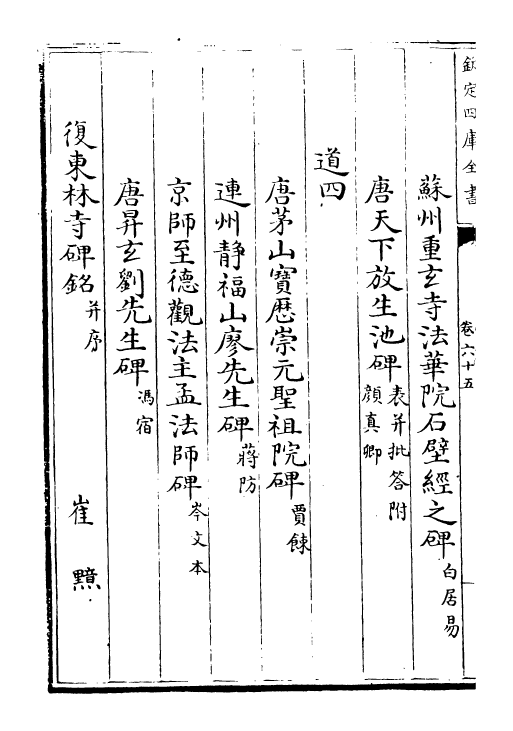 欽定四庫全書
卷六十五
蘇州重玄寺法華院石壁經之碑 白居易
唐天下放生池碑 表并批答附 顔真卿
道四
唐茅山寶歴崇元聖祖院碑 賈餗
連州静福山廖先生碑 蔣防
京師至德觀法主孟法師碑 岑文本
唐昇玄劉先生碑 馮宿
復東林寺碑銘 并序 崔黯